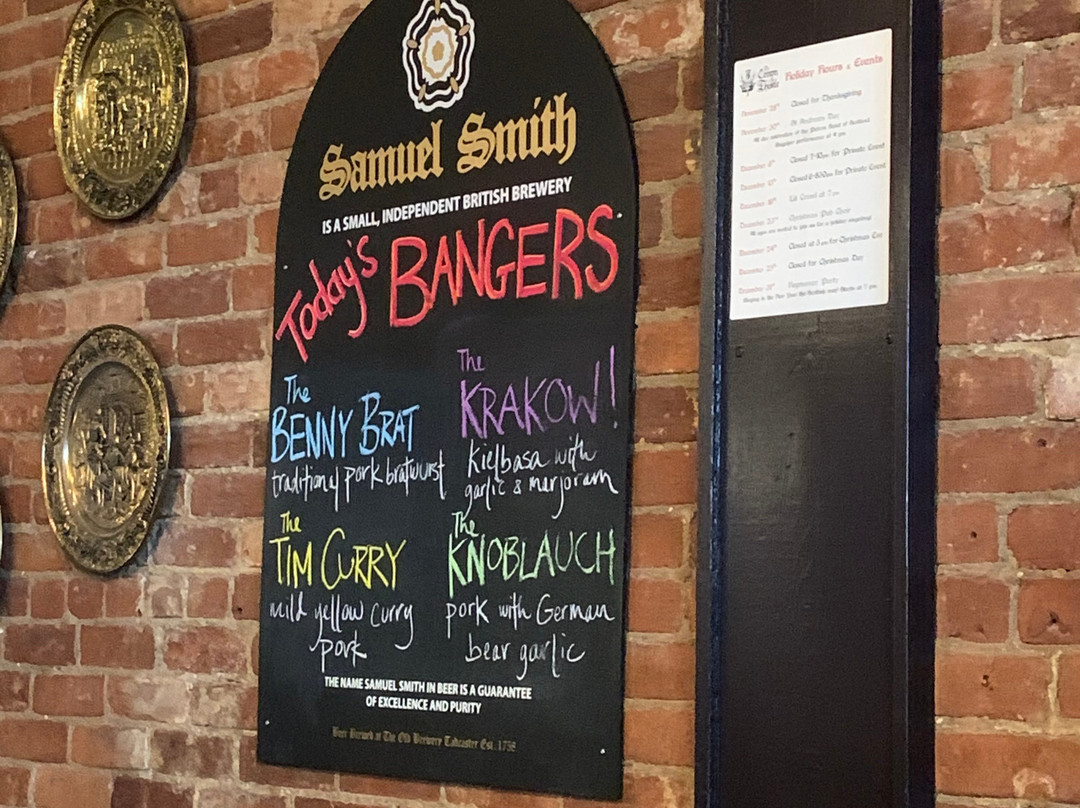 Samuel Smith
IS A SMALL, INDEPENDENT BRITISH BREWERY
Today's BANGERS
The
BENNY BRAT
traditional pork bratwurst
The
KRAKOW!
kielbasa with
garlic & marjoram
The
TIM CURRY
mild yellow curry
pork
The
KNOBLAUCH
pork with German
bear garlic
THE NAME SAMUEL SMITH IN BEER IS A GUARANTEE
OF EXCELLENCE AND PURITY
Beer Brewed at The Old Brewery Tadcaster Est. 1758
Holiday Hours & Events
November 28th Closed for Thanksgiving
November 30th St Andrews Day
Closed 7-10pm for Private Event
Closed 6-8:30pm for Private Event
Christmas Pub Choir
December 24th Closed at 3 pm for Christmas Eve
December 25th Closed for Christmas Day